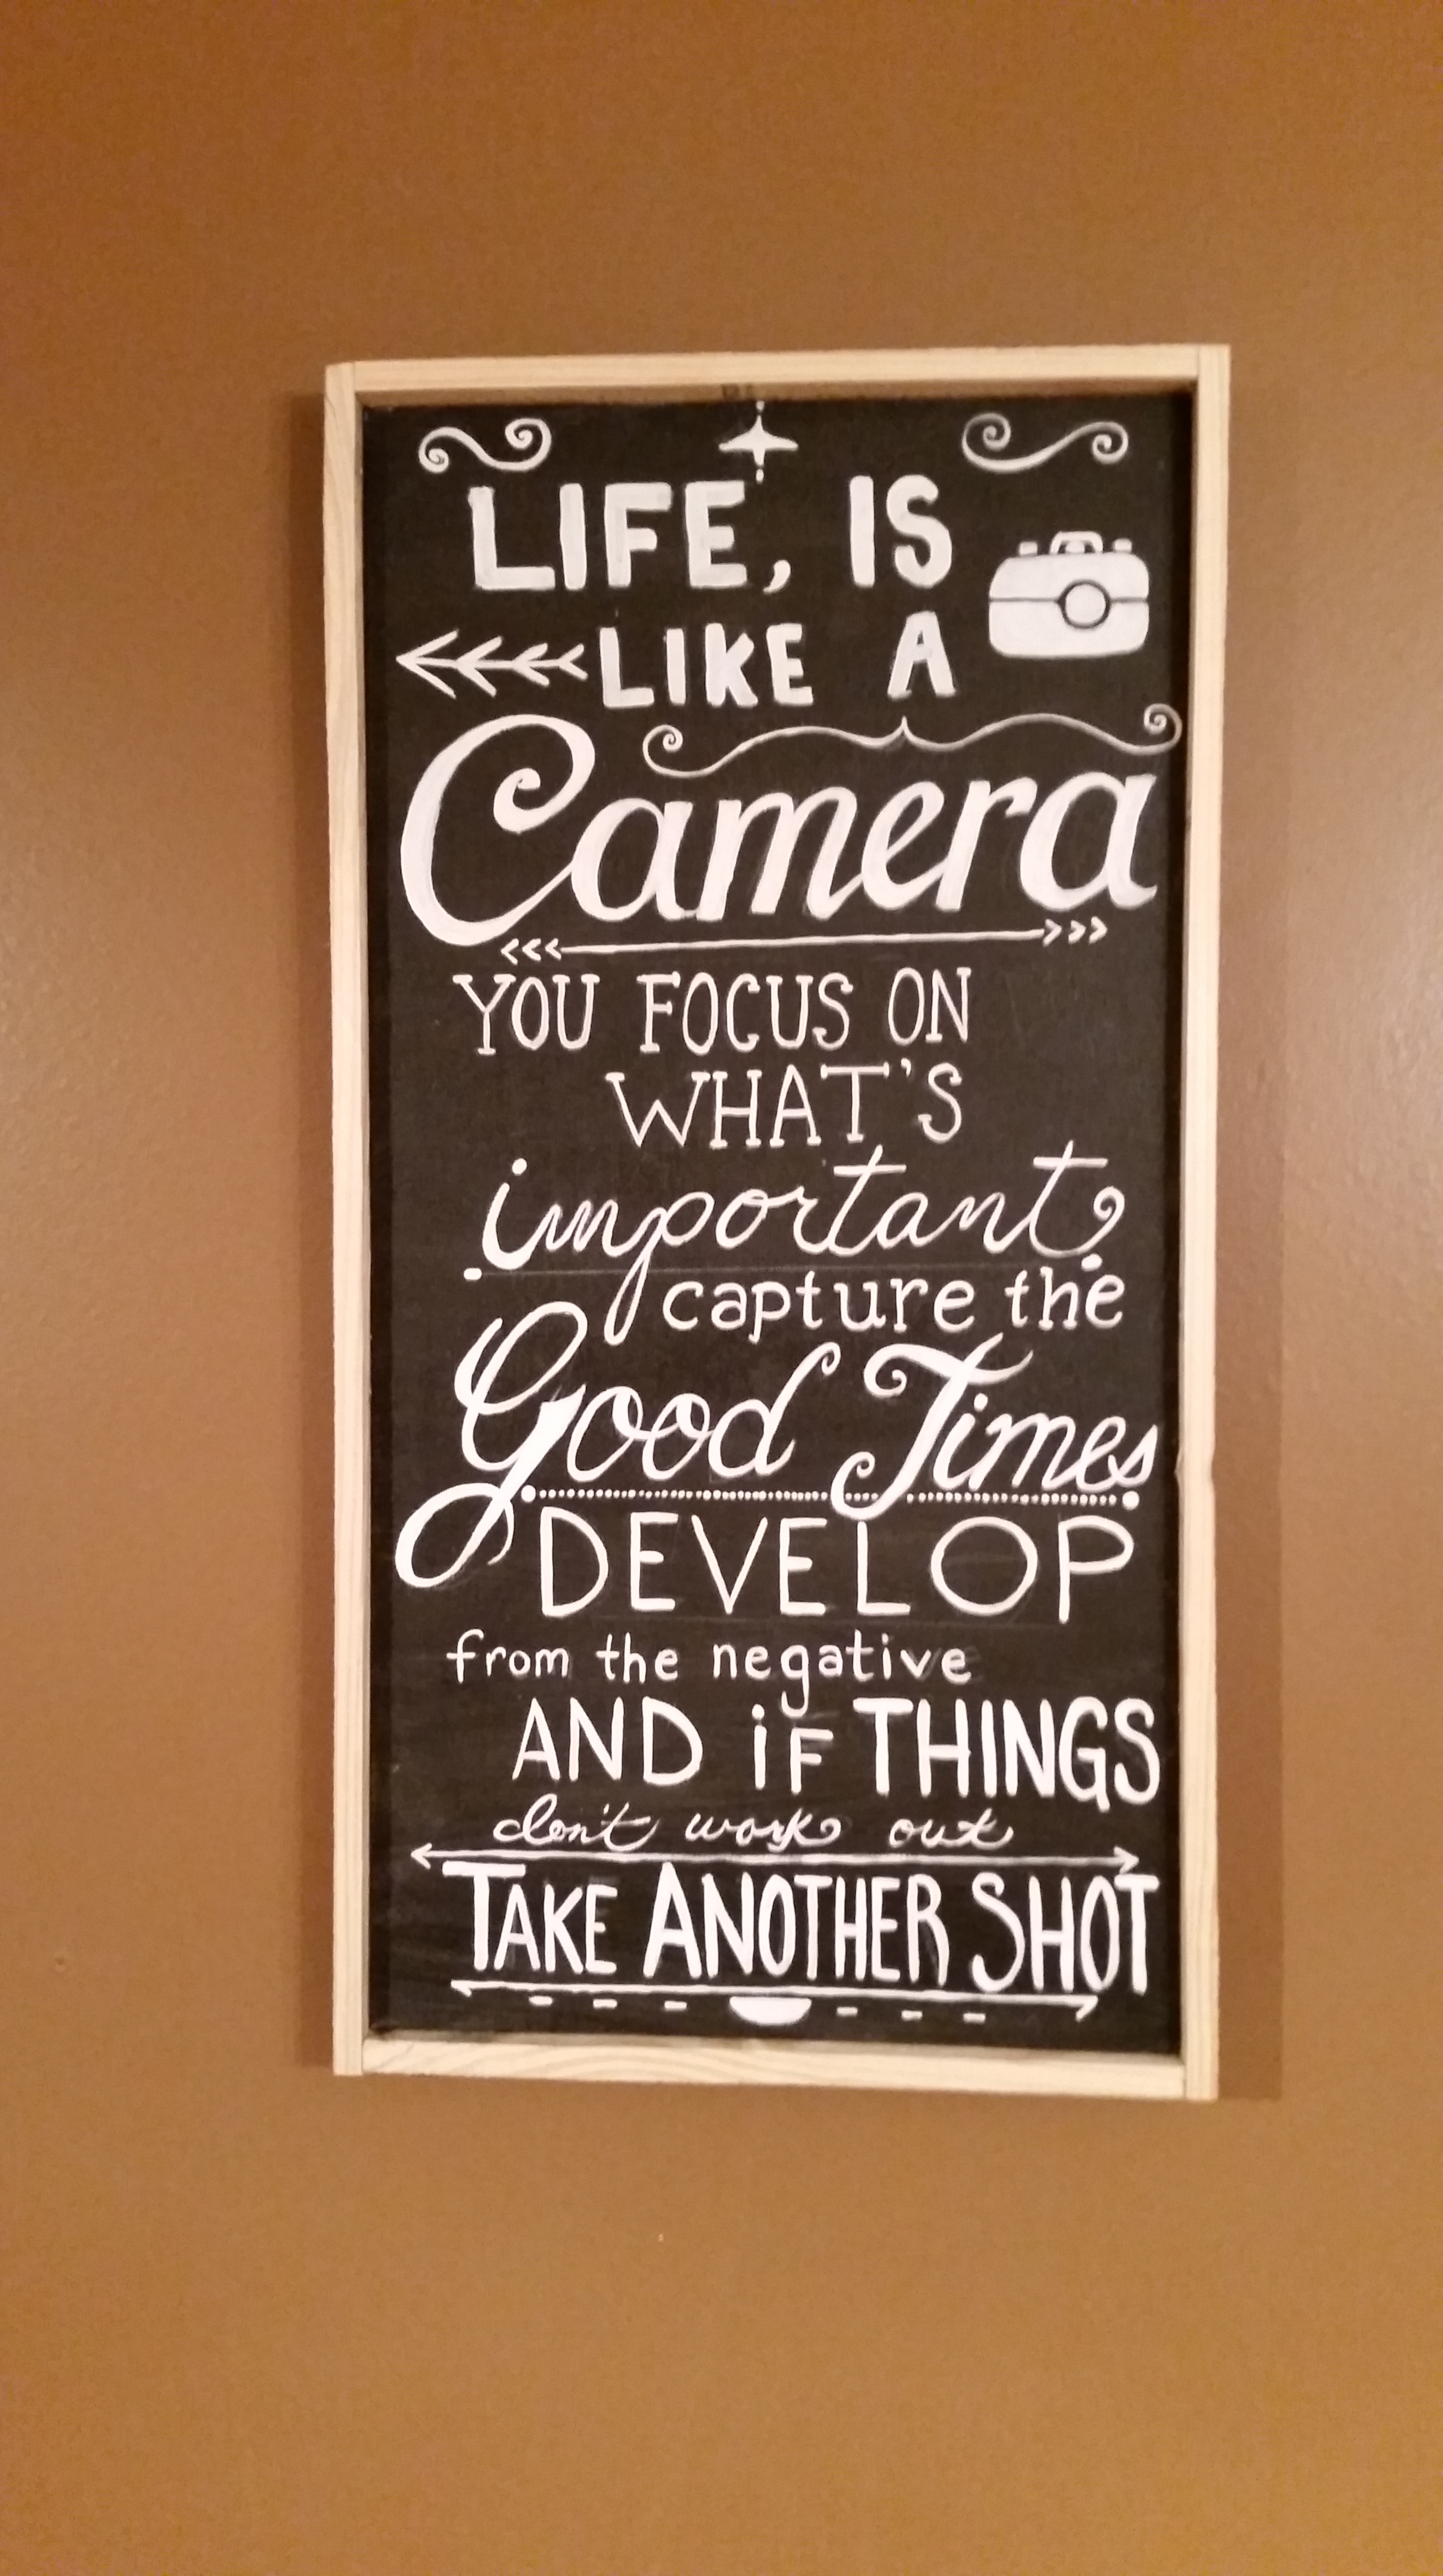 LIFE, IS
LIKE A
Camera
YOU FOCUS ON
WHAT'S
important
capture the
Good Times
DEVELOP
from the negative
AND iF THINGS
don't work out
TAKE ANOTHER SHOT